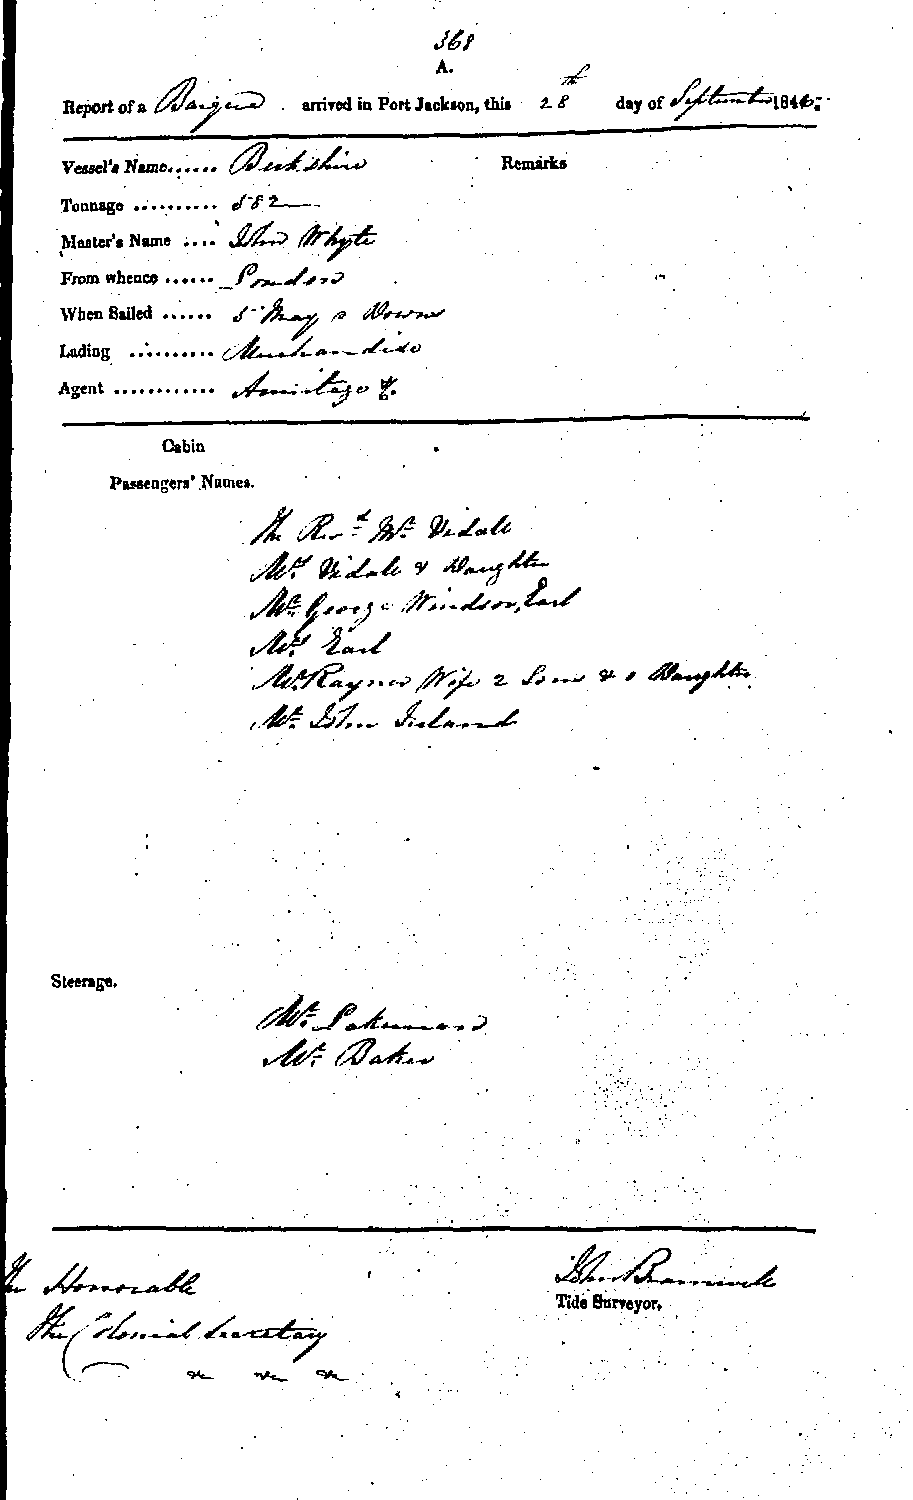 368
A.
Report of a Barque arrived in Port Jackson, this 28th day of September 1840:
Vessel's Name...... Berkshire Remarks
Tonnage .......... 582
Master's Name .... John Whyte
From whence ...... London
When Sailed ...... 5 May Downs
Lading .......... Merchandise
Agent ............ Armitage & Co.
Cabin
Passengers' Names.
The Revd Mr. Vidall
Mrs. Vidall & Daughter
Mr. George Windsor Earl
Mrs. Earl
Mr. Rayner Wife 2 Sons & Daughter
Mr. John Ireland
Steerage.
Mr. Lakeman
Mr. Baker
The Honorable
The Colonial Secretary
&c &c &c
John Bramwell
Tide Surveyor.